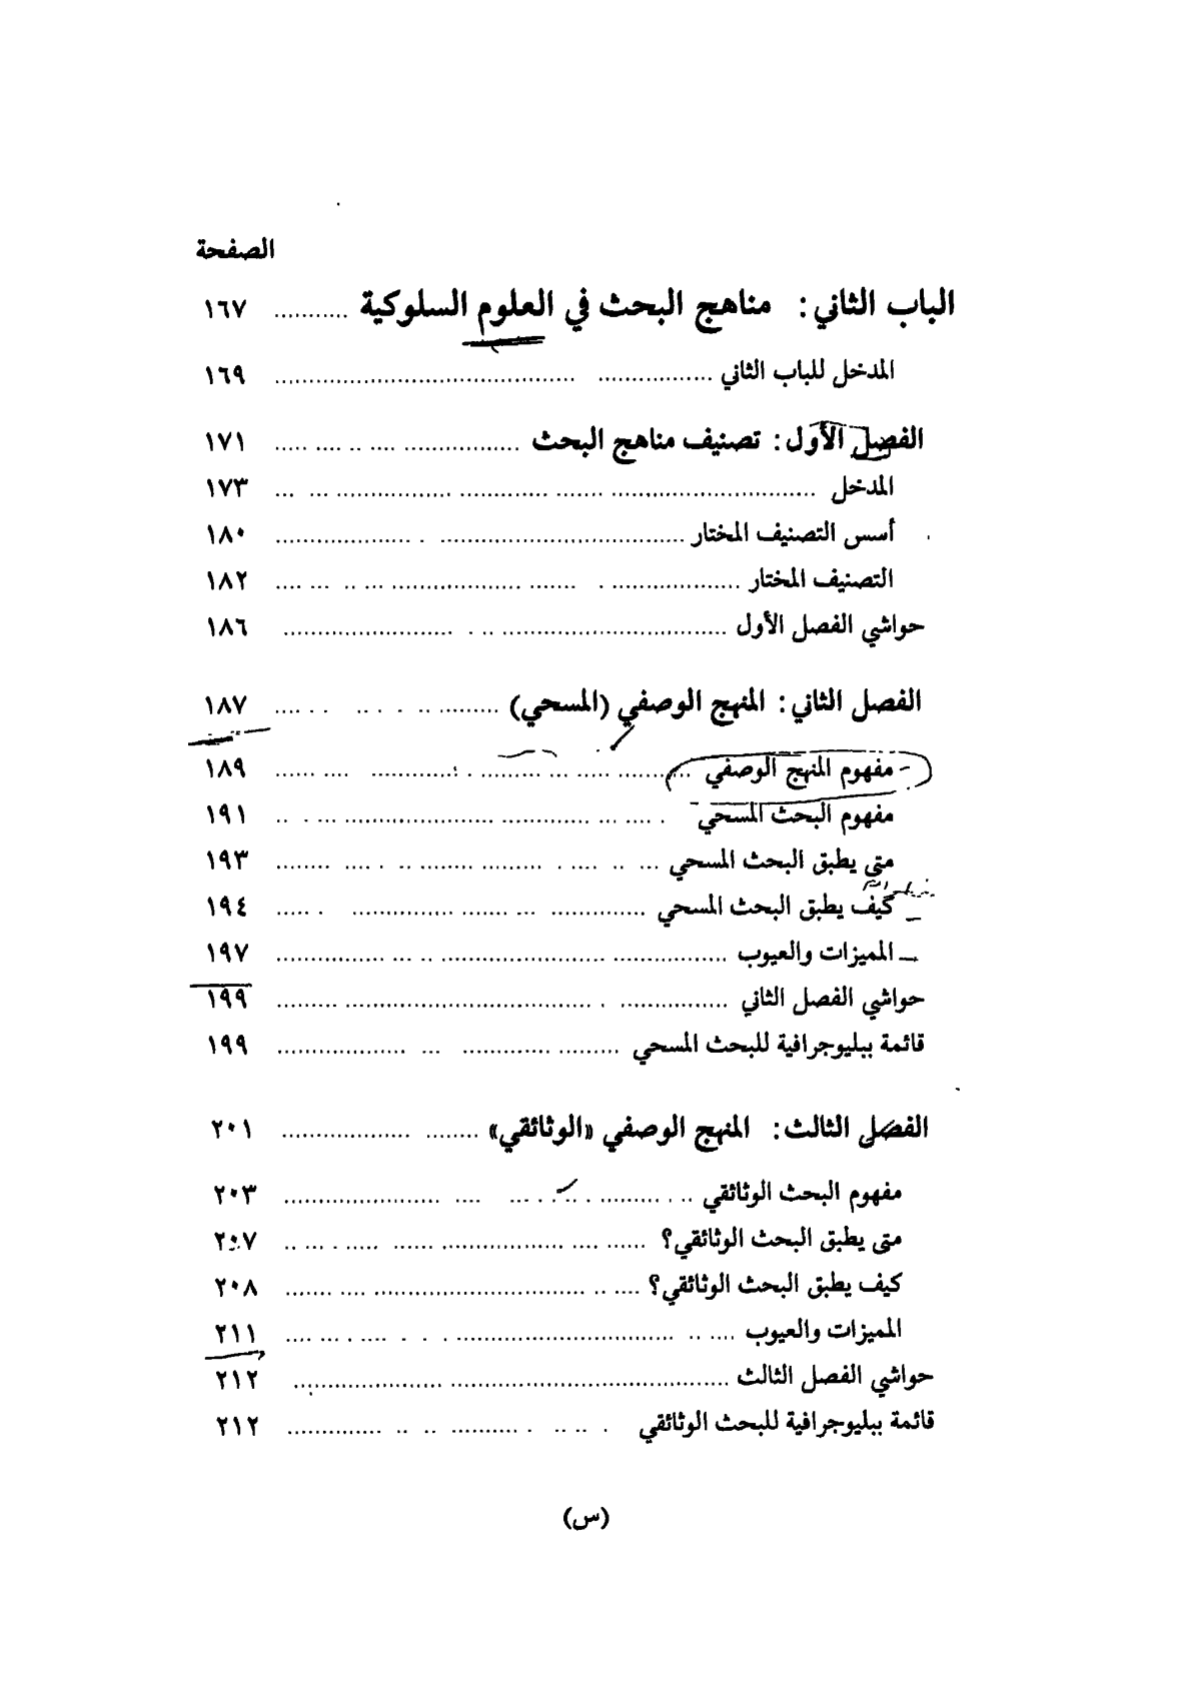 الصفحة
الباب الثاني: مناهج البحث في العلوم السلوكية ........... ١٦٧
المدخل للباب الثاني ........... ١٦٩
الفصل الأول: تصنيف مناهج البحث ........... ١٧١
المدخل ........... ١٧٣
أسس التصنيف المختار ........... ١٨٠
التصنيف المختار ........... ١٨٢
حواشي الفصل الأول ........... ١٨٦
الفصل الثاني: المنهج الوصفي (المسحي) ........... ١٨٧
مفهوم المنهج الوصفي ........... ١٨٩
مفهوم البحث المسحي ........... ١٩١
متى يطبق البحث المسحي ........... ١٩٣
كيف يطبق البحث المسحي ........... ١٩٤
المميزات والعيوب ........... ١٩٧
حواشي الفصل الثاني ........... ١٩٩
قائمة ببليوجرافية للبحث المسحي ........... ١٩٩
الفصل الثالث: المنهج الوصفي «الوثائقي» ........... ٢٠١
مفهوم البحث الوثائقي ........... ٢٠٣
متى يطبق البحث الوثائقي؟ ........... ٢٠٧
كيف يطبق البحث الوثائقي؟ ........... ٢٠٨
المميزات والعيوب ........... ٢١١
حواشي الفصل الثالث ........... ٢١٢
قائمة ببليوجرافية للبحث الوثائقي ........... ٢١٢
(س)